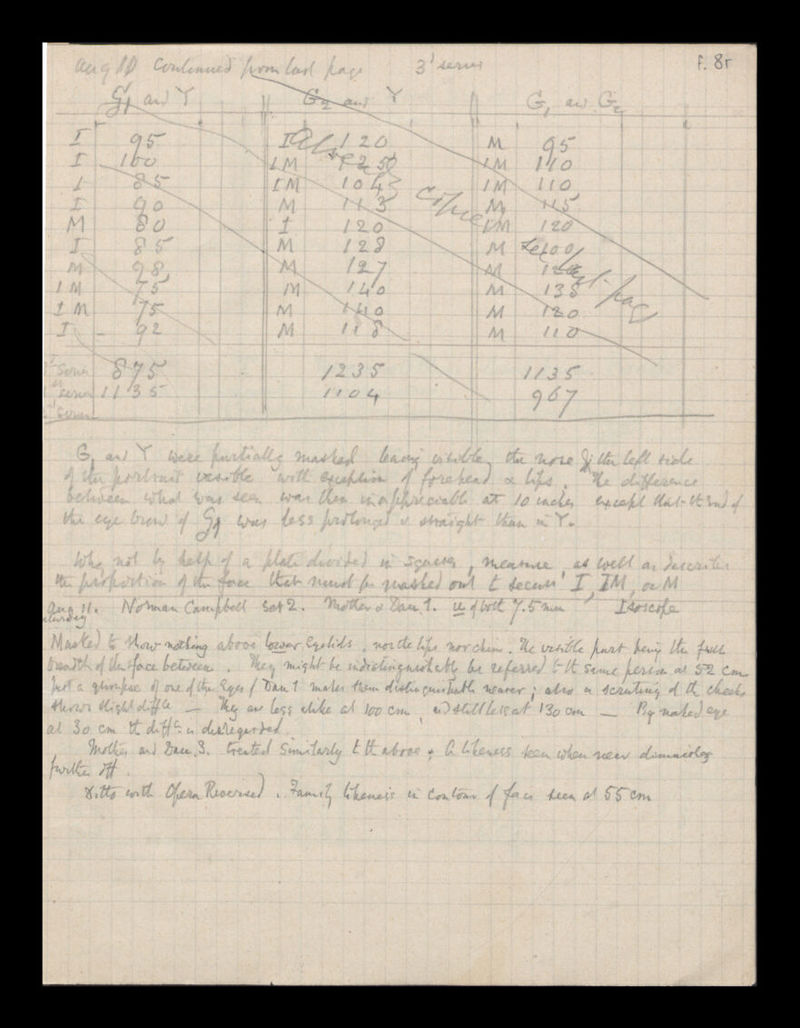 Aug 10 continued from last page 3ʳ series f. 8r
G1 and Y G2 and Y G1 and G2
I 95 I 120 M 95
I 100 IM 125 IM 110
I 85 IM 104 IM 110
I 90 M 113 M 115
M 80 I 120 IM 120
I 85 M 128 M 100
M 98 M 127 M
IM 75 M 140 M 135
IM 75 M 140 M 120
I 92 M 118 M 110
series 875 1235 1135
series 1135 1104 967
series
G1 and Y were partially masked leaving visible the nose & the left side
of the portrait visible with exception of forehead & lips. The difference
between what was seen was then inappreciable at 10 inches except that the end of
the eye brow of G1 was less prolonged & straight than in Y.
Why not by help of a plate divided in squares, measure, as well as describe
the proportion of the face that must be masked out to secure I, IM, or M
Aug 11. Norman Campbell Set 2. Mother & Dau 1. u of both 7.5 mm Isoscope
Saturday
Masked to show nothing above lower Eyelids, nor the lips nor chin. The visible part being the full
breadth of the face between. They might be indistinguishable be referred to the same person at 52 cm
but a glimpse of one of the Eyes of Dau 1 makes them distinguishable nearer; also a scrutiny of the cheeks
shows slight diffce — They are less alike at 100 cm, and still less at 130 cm — By naked eye
at 30 cm the diffce is disregarded.
Mother and Dau. 3. treated similarly to the above, likeness seen when near diminishes
further off.
Ditto with Opera Reversed. Family likeness in contour of face seen at 55 cm